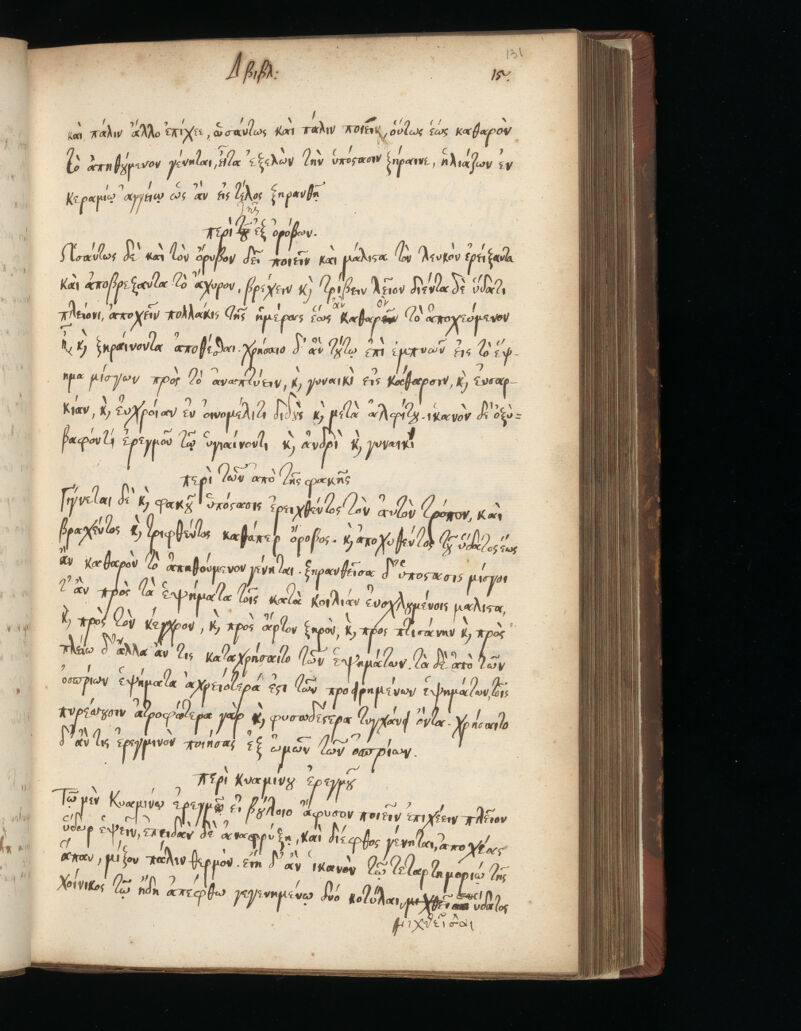 131
Δ βιβλ:
15.
καὶ πάλιν ἄλλο ἐπίχεε, ὡσαύτως καὶ πάλιν ποιεῖν, οὕτως ἕως καθαρὸν
τὸ ἀπηθούμενον γένηται, εἶτα ἐξελὼν τὴν ὑπόστασιν ξήραινε, ἡλιάζων ἐν
κεραμίῳ ἀγγείῳ ὡς ἂν εἰς τέλος ξηρανθῇ
περὶ τῆς ἐξ ὀρόβων.
Ὡσαύτως δὲ καὶ τὸν ὄροβον δεῖ ποιεῖν καὶ μάλιστα τὸν λευκὸν ἐρείξαντα
καὶ ἀποβρέξαντα τὸ ἄχυρον, βρέχειν καὶ τρίβειν λεῖον διέντα δὲ ὕδατι
πλείονι, ἀποχεῖν πολλάκις τῆς ἡμέρας ἕως ἂν καθαρὸν τὸ ἀποχεόμενον
ᾖ, καὶ ξηραίνοντα ἀποθέσθαι. χρήσαιο δ' ἂν τούτῳ ἐπὶ ἐμπυῶν εἰς τὸ ἕψ-
ημα μίσγων πρὸς τὸ ἀναπτύειν, καὶ γυναικὶ εἰς κάθαρσιν, καὶ εὐσαρ-
κίαν, καὶ εὐχροίαν ἐν οἰνομέλιτι διδοὺς καὶ μετὰ ἀλφίτου. ἱκανὸν δὲ ὀξύ-
βαφόν τι ἐρεγμοῦ τῷ ὑγιαίνοντι καὶ ἀνδρὶ καὶ γυναικὶ
περὶ τῶν ἀπὸ τῆς φακῆς
Γίγνεται δὲ καὶ φακοῦ ὑπόστασις ἐρειχθέντος τὸν αὐτὸν τρόπον, καὶ
βραχέντος καὶ τριφθέντος καθάπερ ὄροβος. καὶ ἀποχυθέντος τοῦ ὕδατος ἕως
ἂν καθαρὸν τὸ ἀπηθούμενον γένηται. ξηρανθεῖσα δ' ὑπόστασις μίσγοι
τ' ἂν πρὸς τὰ ἑψήματα τοῖς κατὰ κοιλίαν ἐνοχλουμένοις μάλιστα,
καὶ πρὸς τὸν κέγχρον, καὶ πρὸς ἄρτον ξηρὸν, καὶ πρὸς πτισάνην καὶ πρὸς
πλείω δ' ἄλλα ἄν τις καταχρήσαιτο τῶν ἑψημάτων. τὰ δὲ ἀπὸ τῶν
ὀσπρίων ἑψήματα ἀχρειότερά ἐστι τῶν προειρημένων ἑψημάτων, τοῖς
πυρέσσουσιν ἀτροφώτερα γὰρ καὶ φυσωδέστερα τυγχάνει ὄντα. χρήσαιτο
δ' ἄν τις ἐρεγμινὸν ποιήσας ἐξ ὠμῶν τῶν ὀσπρίων.
περὶ κυαμίνου ἐρεγμοῦ
Τῷ μὲν κυαμίνῳ ἐρεγμῷ εἰ βούλοιο ἄφυσον ποιεῖν ἐπιχέειν πλεῖον
ὕδωρ ἑψεῖν, ἐπειδὰν δὲ ἀναφρύξῃ, καὶ δίεφθος γένηται, ἀποχέας
ἅπαν, μίξον πάλιν θερμόν. εἴη δ' ἂν ἱκανὸν τῷ τεταρτημορίῳ τῆς
χοίνικος τῷ ἤδη ἀπέφθῳ γεγενημένῳ δύο κοτύλαι, ὕδατος
μιχθεῖσαι